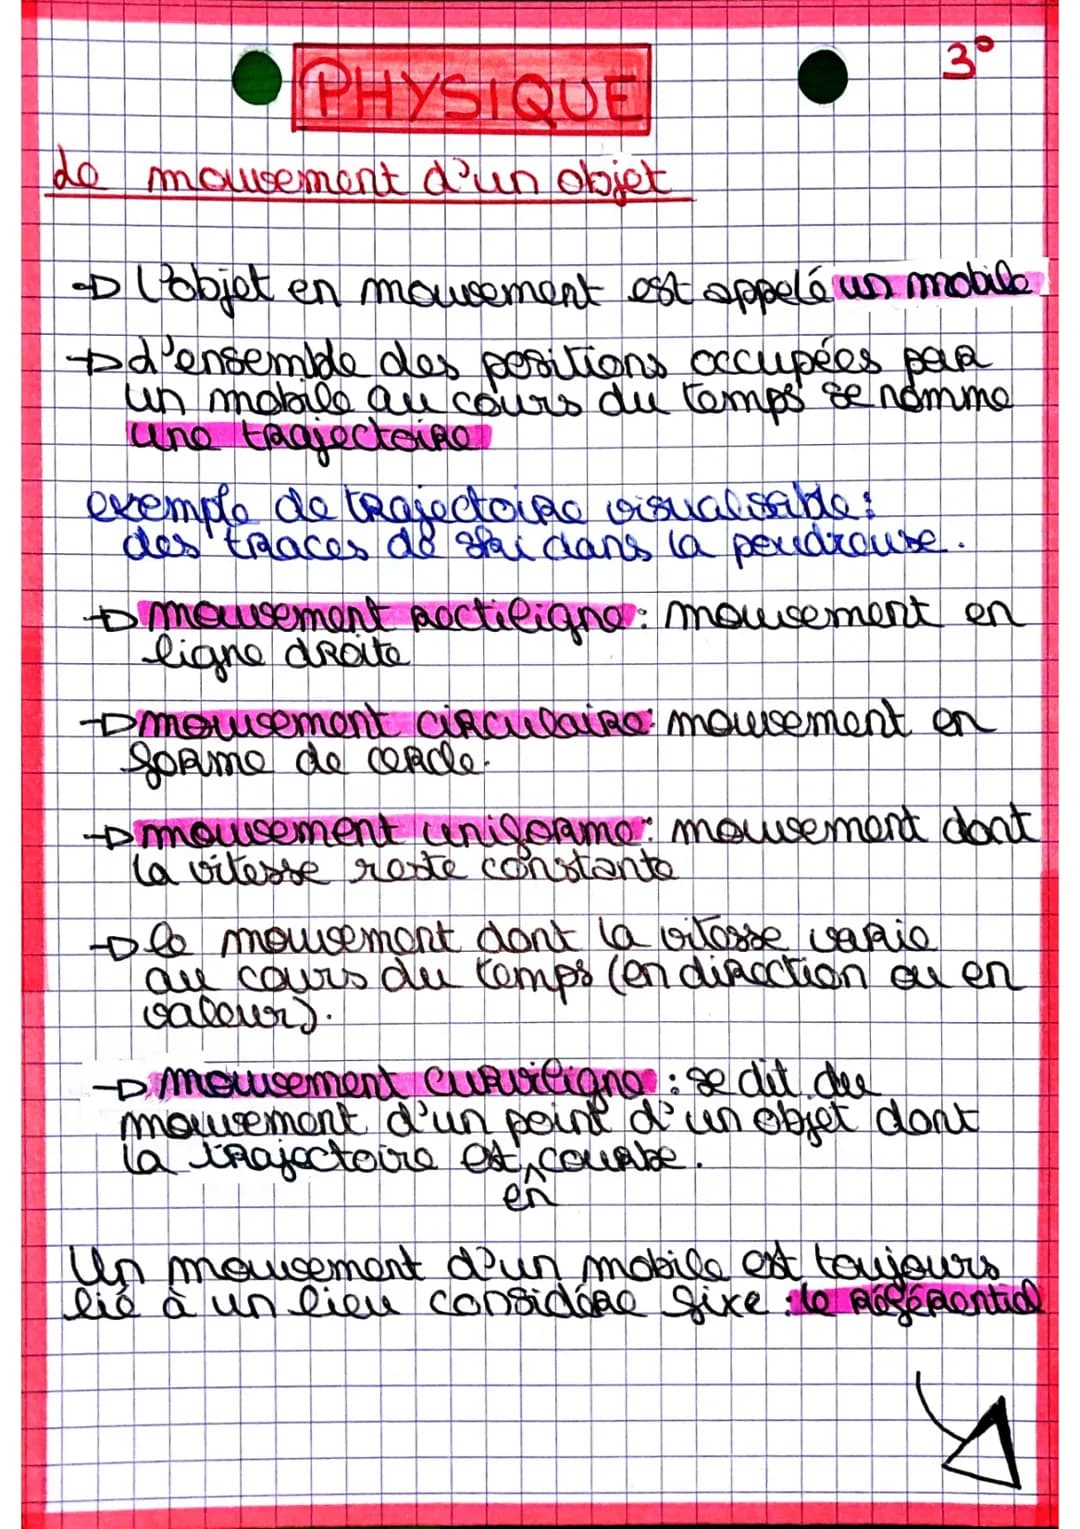 3°
PHYSIQUE
Le mouvement d'un objet
→ L'objet en mouvement est appelé un mobile
→ L'ensemble des positions occupées par
un mobile au cours du temps se nomme
une trajectoire
exemple de trajectoire visualisable :
des traces de ski dans la poudreuse.
→ mouvement rectiligne : mouvement en
ligne droite
→ mouvement circulaire : mouvement en
forme de cercle.
→ mouvement uniforme : mouvement dont
la vitesse reste constante
→ le mouvement dont la vitesse varie
au cours du temps (en direction ou en
valeur).
→ mouvement curviligne : se dit du
mouvement d'un point d'un objet dont
la trajectoire est courbe.
en
Un mouvement d'un mobile est toujours
lié à un lieu considéré fixe : le référentiel